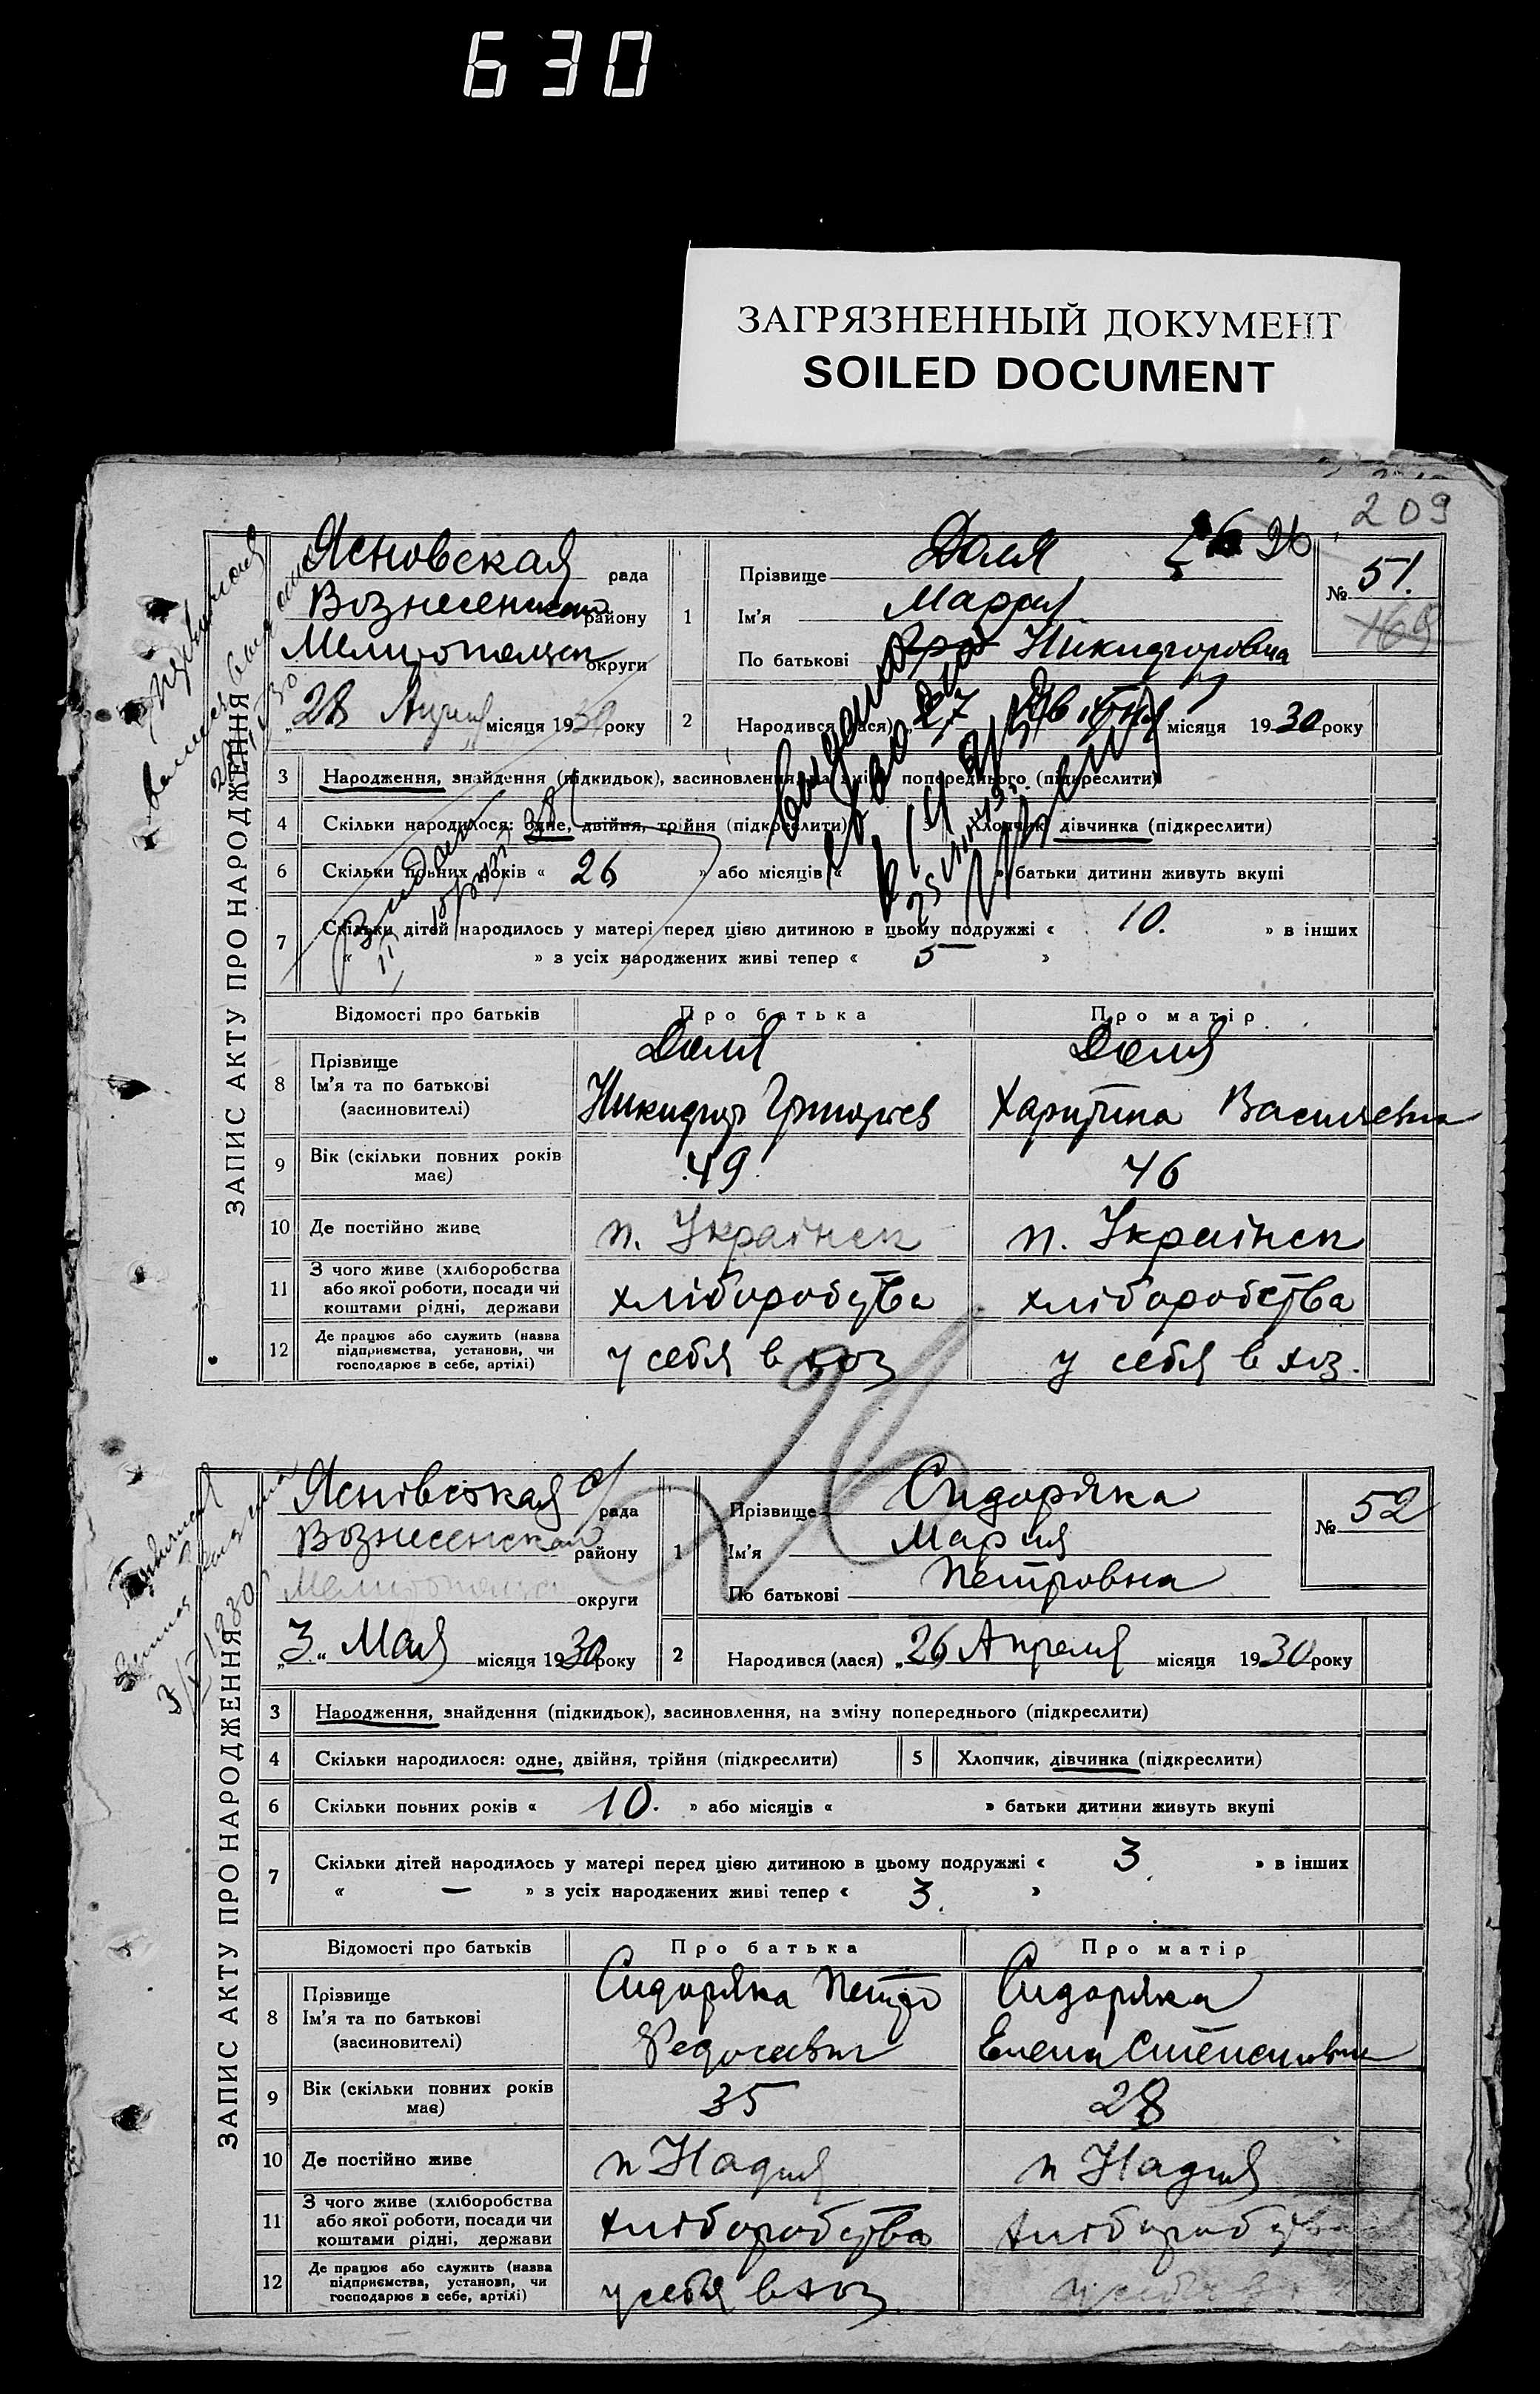 630
ЗАГРЯЗНЕННЫЙ ДОКУМЕНТ
SOILED DOCUMENT
209
ЗАПИС АКТУ ПРО НАРОДЖЕННЯ
Ясновская рада
Вознесенском району
округи
"28 Апреля місяця 1930 року
1
Прізвище Доля
Ім'я Мария
По батькові Никифоровна
№ 51.
169
2 Народився (лася) „27 місяця 1930 року
3 Народження, знайдення (підкидьок), засиновлення, на зміну попереднього (підкреслити)
4 Скільки народилося: одне, двійня, трійня (підкреслити) 5 Хлопчик, дівчинка (підкреслити)
6 Скільки повних років « 26 » або місяців « » батьки дитини живуть вкупі
7 Скільки дітей народилось у матері перед цією дитиною в цьому подружжі « 10. » в інших
« » з усіх народжених живі тепер « 5 »
Відомості про батьків Про батька Про матір
8 Прізвище Ім'я та по батькові (засиновителі)
Доля Доля
Никифор Григорьев Харитина Васильевна
9 Вік (скільки повних років має) 49 46
10 Де постійно живе п. Українсп п. Українсп
11 З чого живе (хліборобства або якої роботи, посади чи коштами рідні, держави хліборобства хліборобства
12 Де працює або служить (назва підприємства, установи, чи господарює в себе, артілі) у себя в хоз у себя в хоз.
26
ЗАПИС АКТУ ПРО НАРОДЖЕННЯ
Яснівская с/ рада
Вознесенском району
округи
„3" Мая місяця 1930 року
1
Прізвище Сидоряка
Ім'я Мария
По батькові Петровна
№ 52
2 Народився (лася) „26 Апреля місяця 1930 року
3 Народження, знайдення (підкидьок), засиновлення, на зміну попереднього (підкреслити)
4 Скільки народилося: одне, двійня, трійня (підкреслити) 5 Хлопчик, дівчинка (підкреслити)
6 Скільки повних років « 10. » або місяців « » батьки дитини живуть вкупі
7 Скільки дітей народилось у матері перед цією дитиною в цьому подружжі « 3 » в інших
« — » з усіх народжених живі тепер « 3. »
Відомості про батьків Про батька Про матір
8 Прізвище Ім'я та по батькові (засиновителі)
Сидоряка Петро Сидоряка
Елена Степановна
9 Вік (скільки повних років має) 35 28
10 Де постійно живе п Надия п Надия
11 З чого живе (хліборобства або якої роботи, посади чи коштами рідні, держави хліборобства хліборобства
12 Де працює або служить (назва підприємства, установи, чи господарює в себе, артілі) у себя в хоз